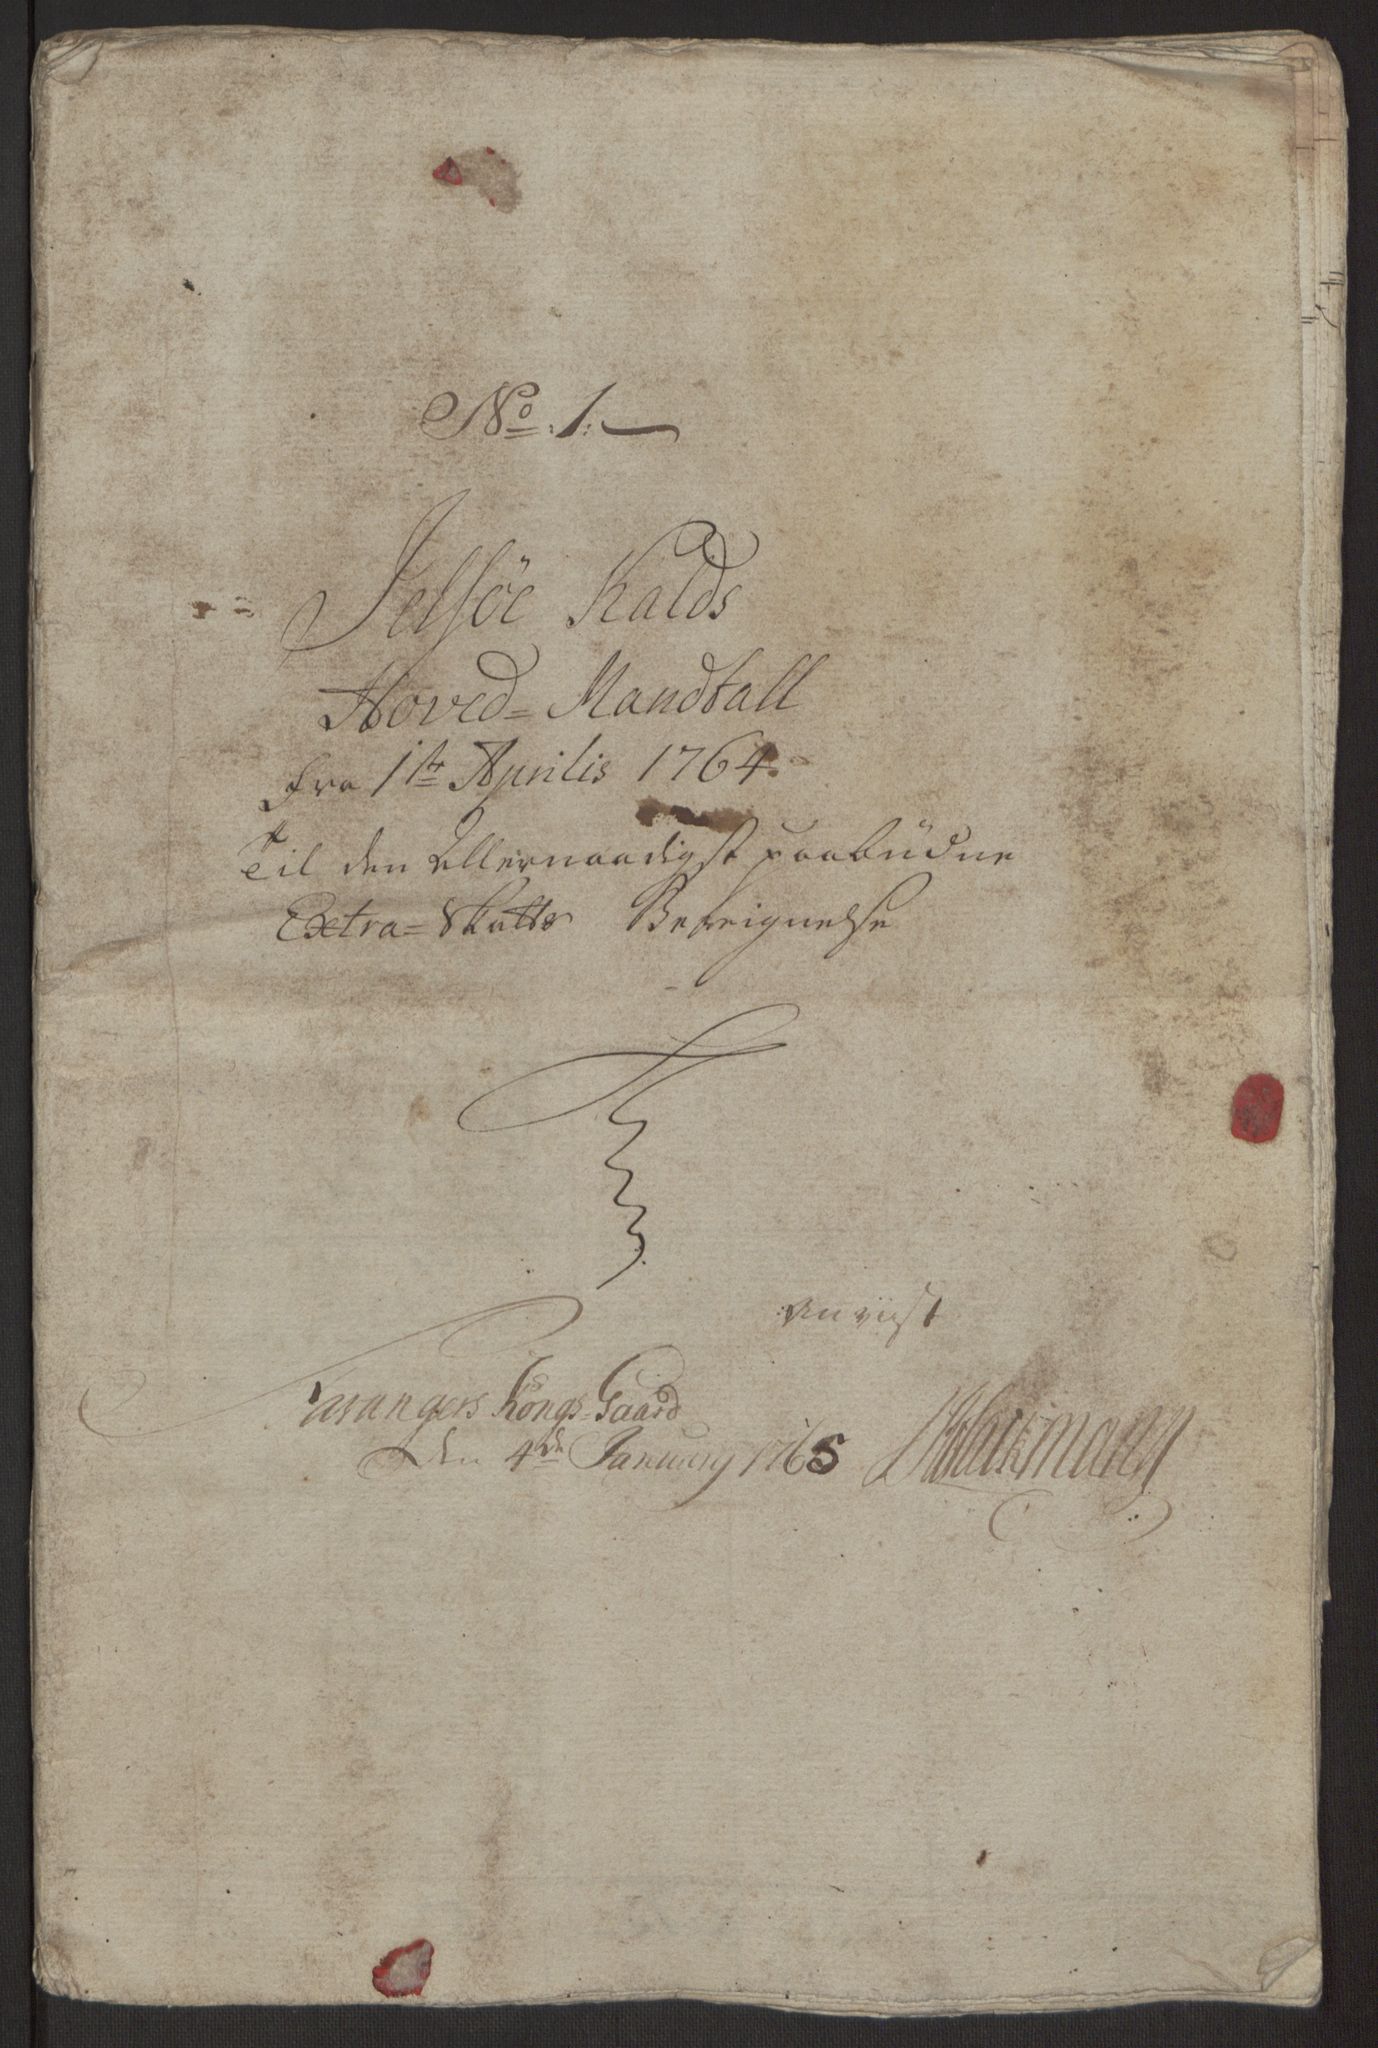 No. 1.
Jelsöe Kalds
Hoved= Mandtall
fra 1te Aprilis 1764
Til den Allernaadigst paabüdne
Extra= Skatts Bereignelse
anviist
Stavangers Kongs=Gaard
den 4de January 1765